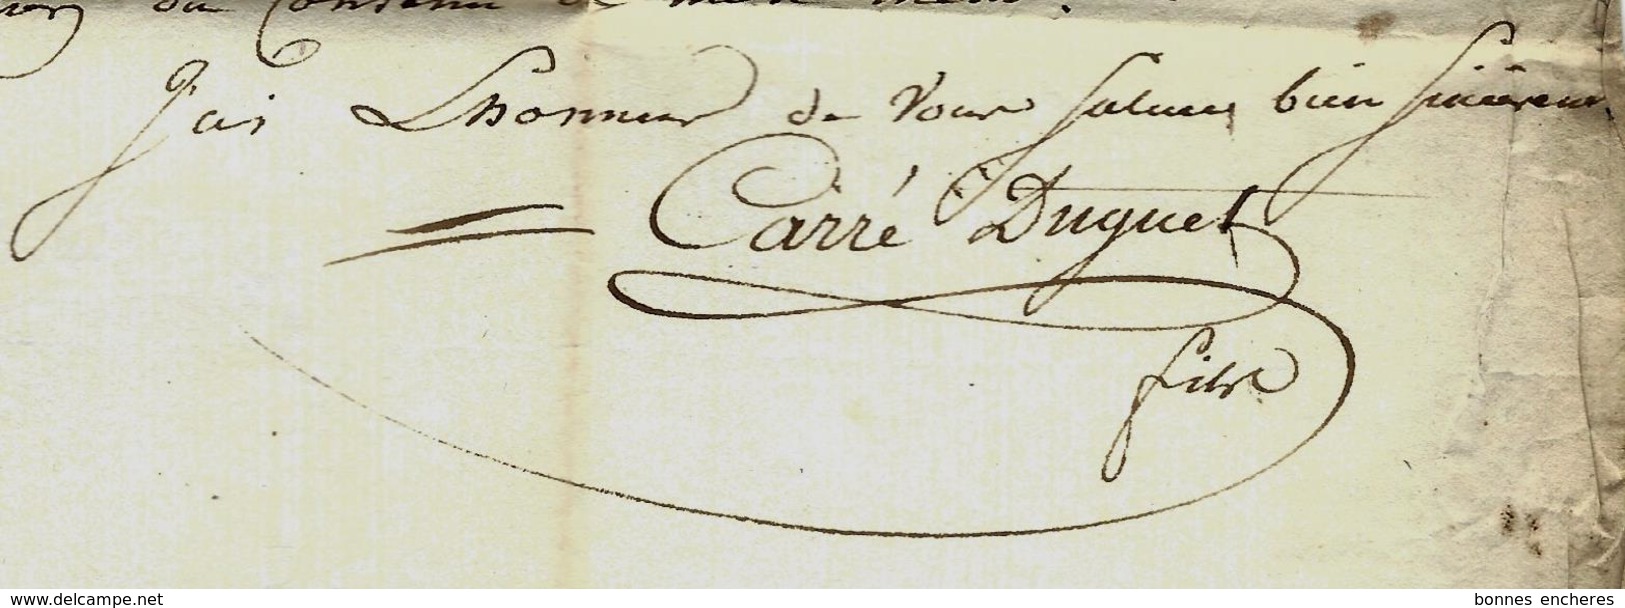 du Contenu de
J'ai Lhonneur de Vous Saluer bien
Carré Duguet
fils
www.delcampe.net bonnes encheres